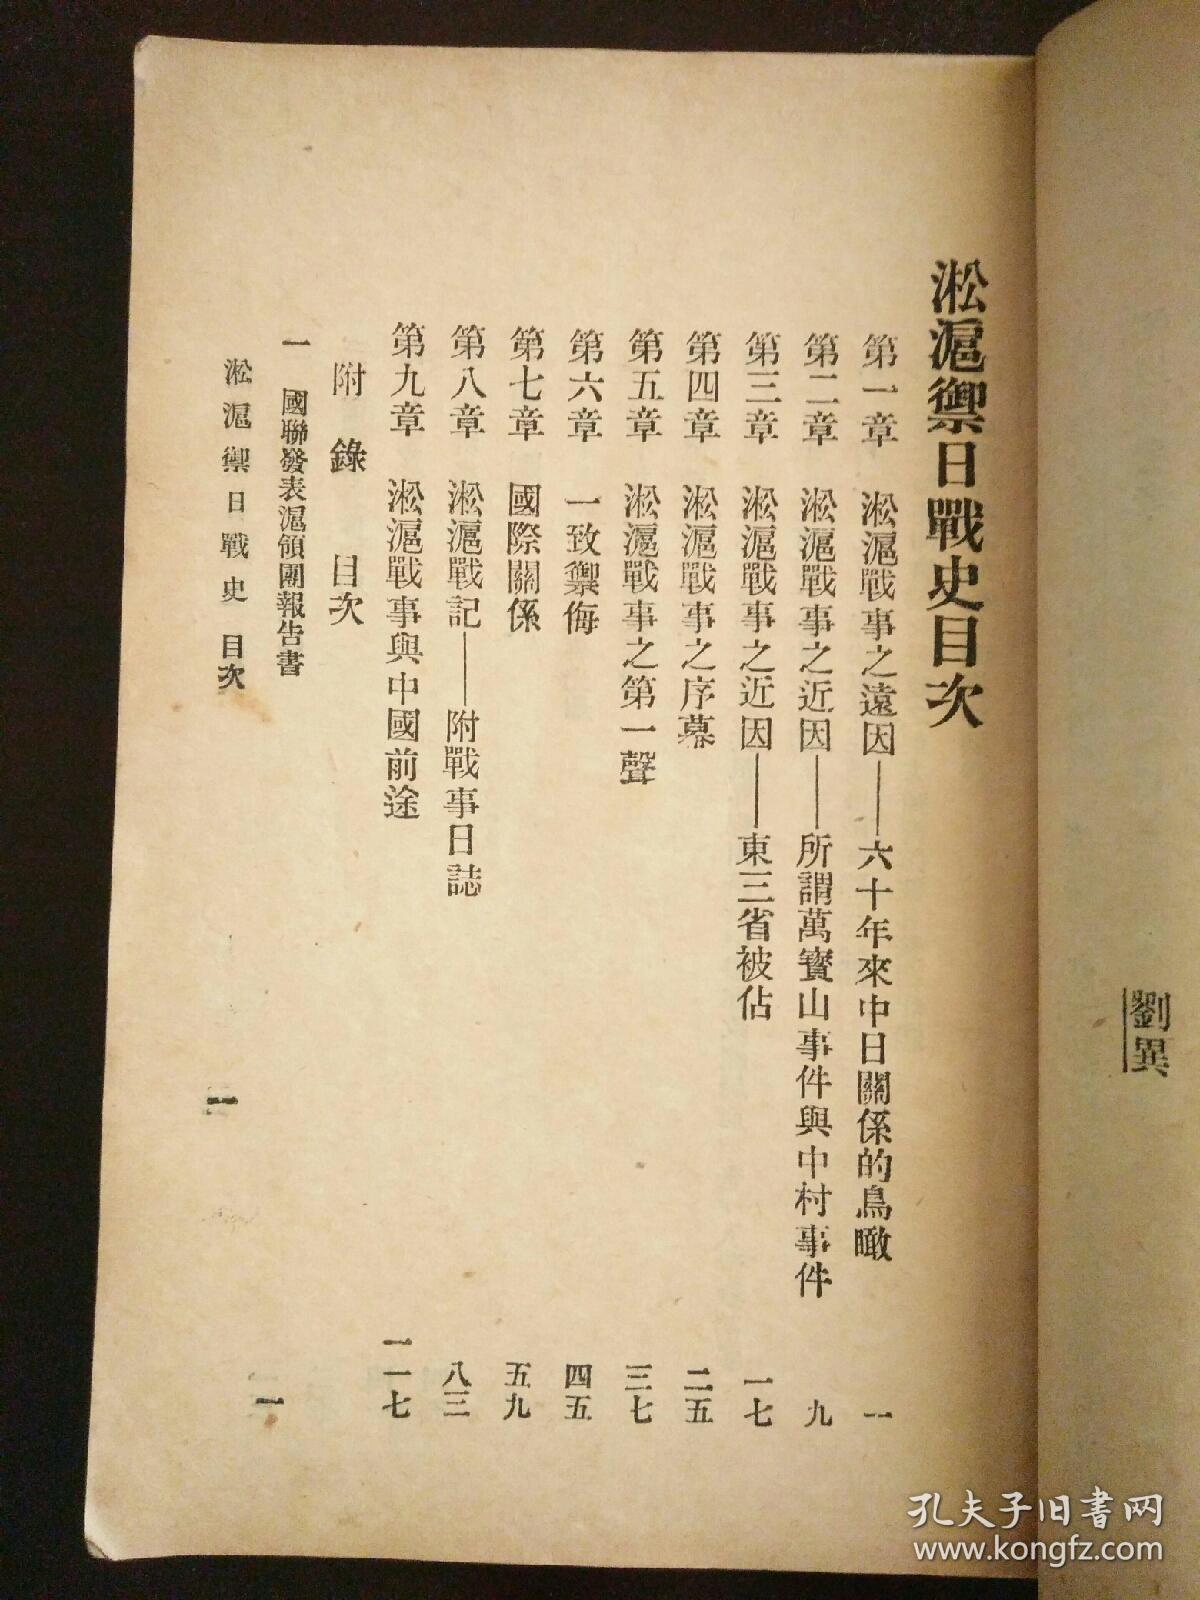 劉異
淞滬禦日戰史目次
第一章　淞滬戰事之遠因——六十年來中日關係的鳥瞰　一
第二章　淞滬戰事之近因——所謂萬寳山事件與中村事件　九
第三章　淞滬戰事之近因——東三省被佔　一七
第四章　淞滬戰事之序幕　二五
第五章　淞滬戰事之第一聲　三七
第六章　一致禦侮　四五
第七章　國際關係　五九
第八章　淞滬戰記——附戰事日誌　八三
第九章　淞滬戰事與中國前途　一一七
附錄　目次
一　國聯發表滬領團報告書　一
淞滬禦日戰史　目次　一
孔夫子旧书网
www.kongfz.com